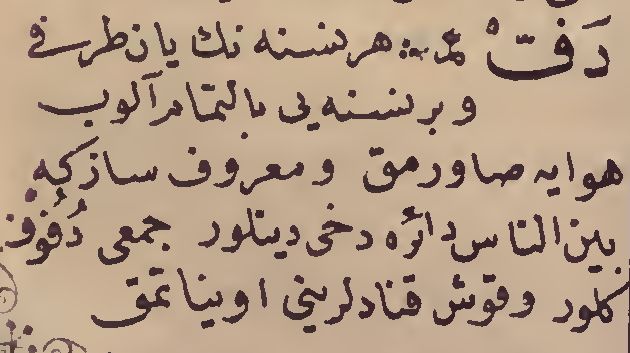 دَفّْ هر نسنه نك يان طرفى
و بر نسنه يى بالتمام آلوب
هوايه صاورمق و معروف سازكه
بين الناس دائره دخى دينلور جمعى دُفُوفْ
كلور و قوش قنادلرينى اويناتمق